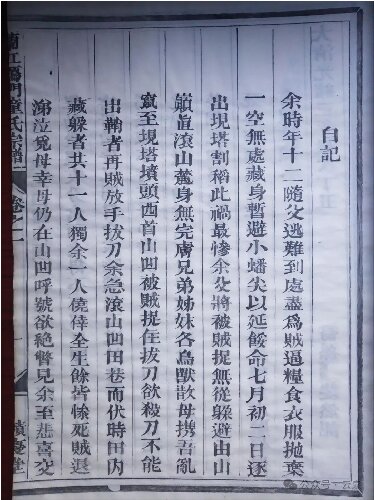 自記
余時年十二隨父逃難到處盡爲賊逼糧食衣服抛棄
一空無處藏身暫避小蟠尖以延餒命七月初二日逐
出現塔割稻此禍最慘余父將被賊捉無從躲避由山
巔直滾山麓身無完膚兄弟姊妹各鳥獸散母携吾亂
竄至現塔墳頭西首山凹被賊捉住拔刀欲殺刀不能
出鞘者再賊放手拔刀余急滾山凹田巷而伏時田內
藏躲者共十一人獨余一人僥倖全生餘皆慘死賊退
涕泣覓母幸母仍在山凹呼號欲絶瞥見余至悲喜交
門童氏宗譜
卷之一
慶堂
公众号